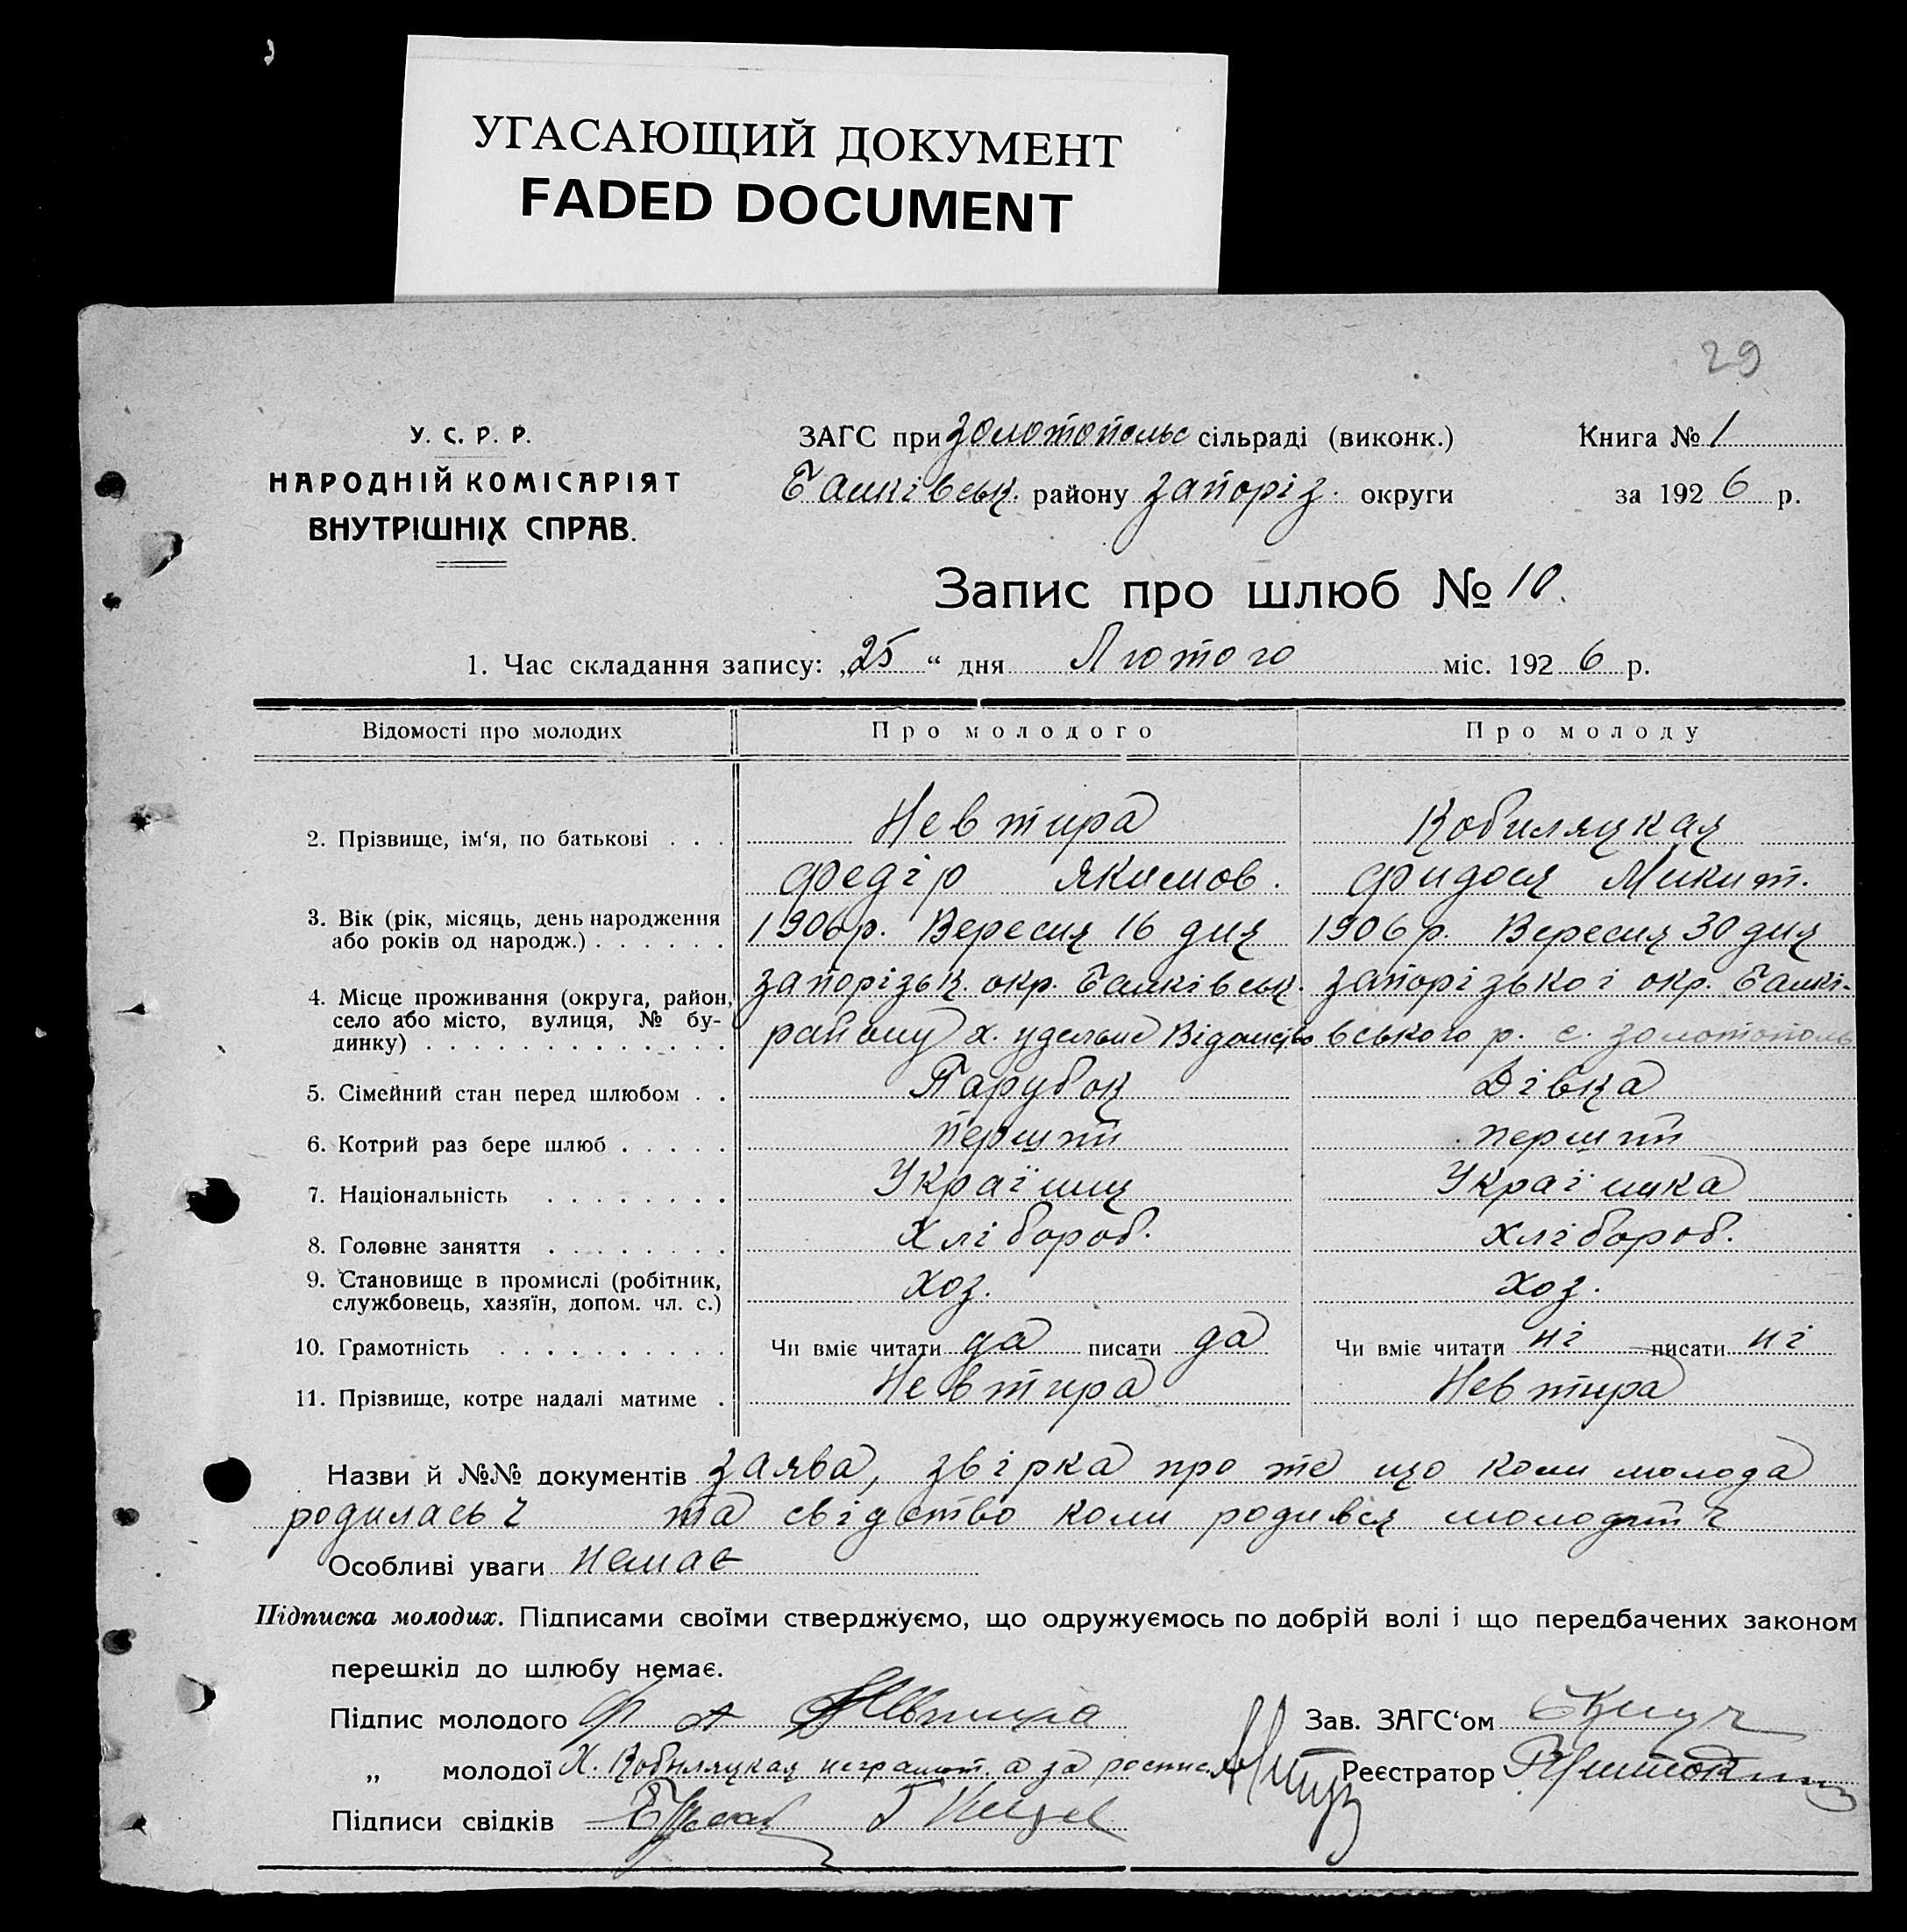 УГАСАЮЩИЙ ДОКУМЕНТ
FADED DOCUMENT
29
У. С. Р. Р.
НАРОДНІЙ КОМІСАРІЯТ
ВНУТРІШНІХ СПРАВ.
ЗАГС при Золотопольс сільраді (виконк.)
Балківськ. району Запоріз. округи
Книга № 1
за 1926 р.
Запис про шлюб № 10.
1. Час складання запису: „25“ дня Лютого міс. 1926 р.
Відомості про молодих Про молодого Про молоду
2. Прізвище, ім‘я, по батькові . . . Невтира Кобиляцкая
Федір Якимов. Фидося Микит.
3. Вік (рік, місяць, день народження
або років од народж.) . . . . . . 1906 р. Вересня 16 дня 1906 р. Вересня 30 дня
4. Місце проживання (округа, район, Запорізьк. окр. Балківськ. Запорізької окр. Балкі-
село або місто, вулиця, № бу-
динку) . . . . . . . . . . . . . району х. удельне вського р. с. Золотополь
5. Сімейний стан перед шлюбом . . Парубок Дівка
6. Котрий раз бере шлюб . . . . . перший перший
7. Національність . . . . . . . . Українц Українка
8. Головне заняття . . . . . . . . Хлібороб. Хлібороб.
9. Становище в промислі (робітник,
службовець, хазяїн, допом. чл. с.) Хоз. Хоз.
10. Грамотність . . . . . . . . . . Чи вміє читати да писати да Чи вміє читати ні писати ні
11. Прізвище, котре надалі матиме . Невтира Невтира
Назви й №№ документів заява, звірка про те що коли молода
родилась та свідство коли родився молодий
Особливі уваги немає
Підписка молодих. Підписами своїми стверджуємо, що одружуємось по добрій волі і що передбачених законом
перешкід до шлюбу немає.
Підпис молодого Ф Невтира Зав. ЗАГС‘ом
„ молодої Кобиляцкая неграмот. а за роспис. Реєстратор
Підписи свідків